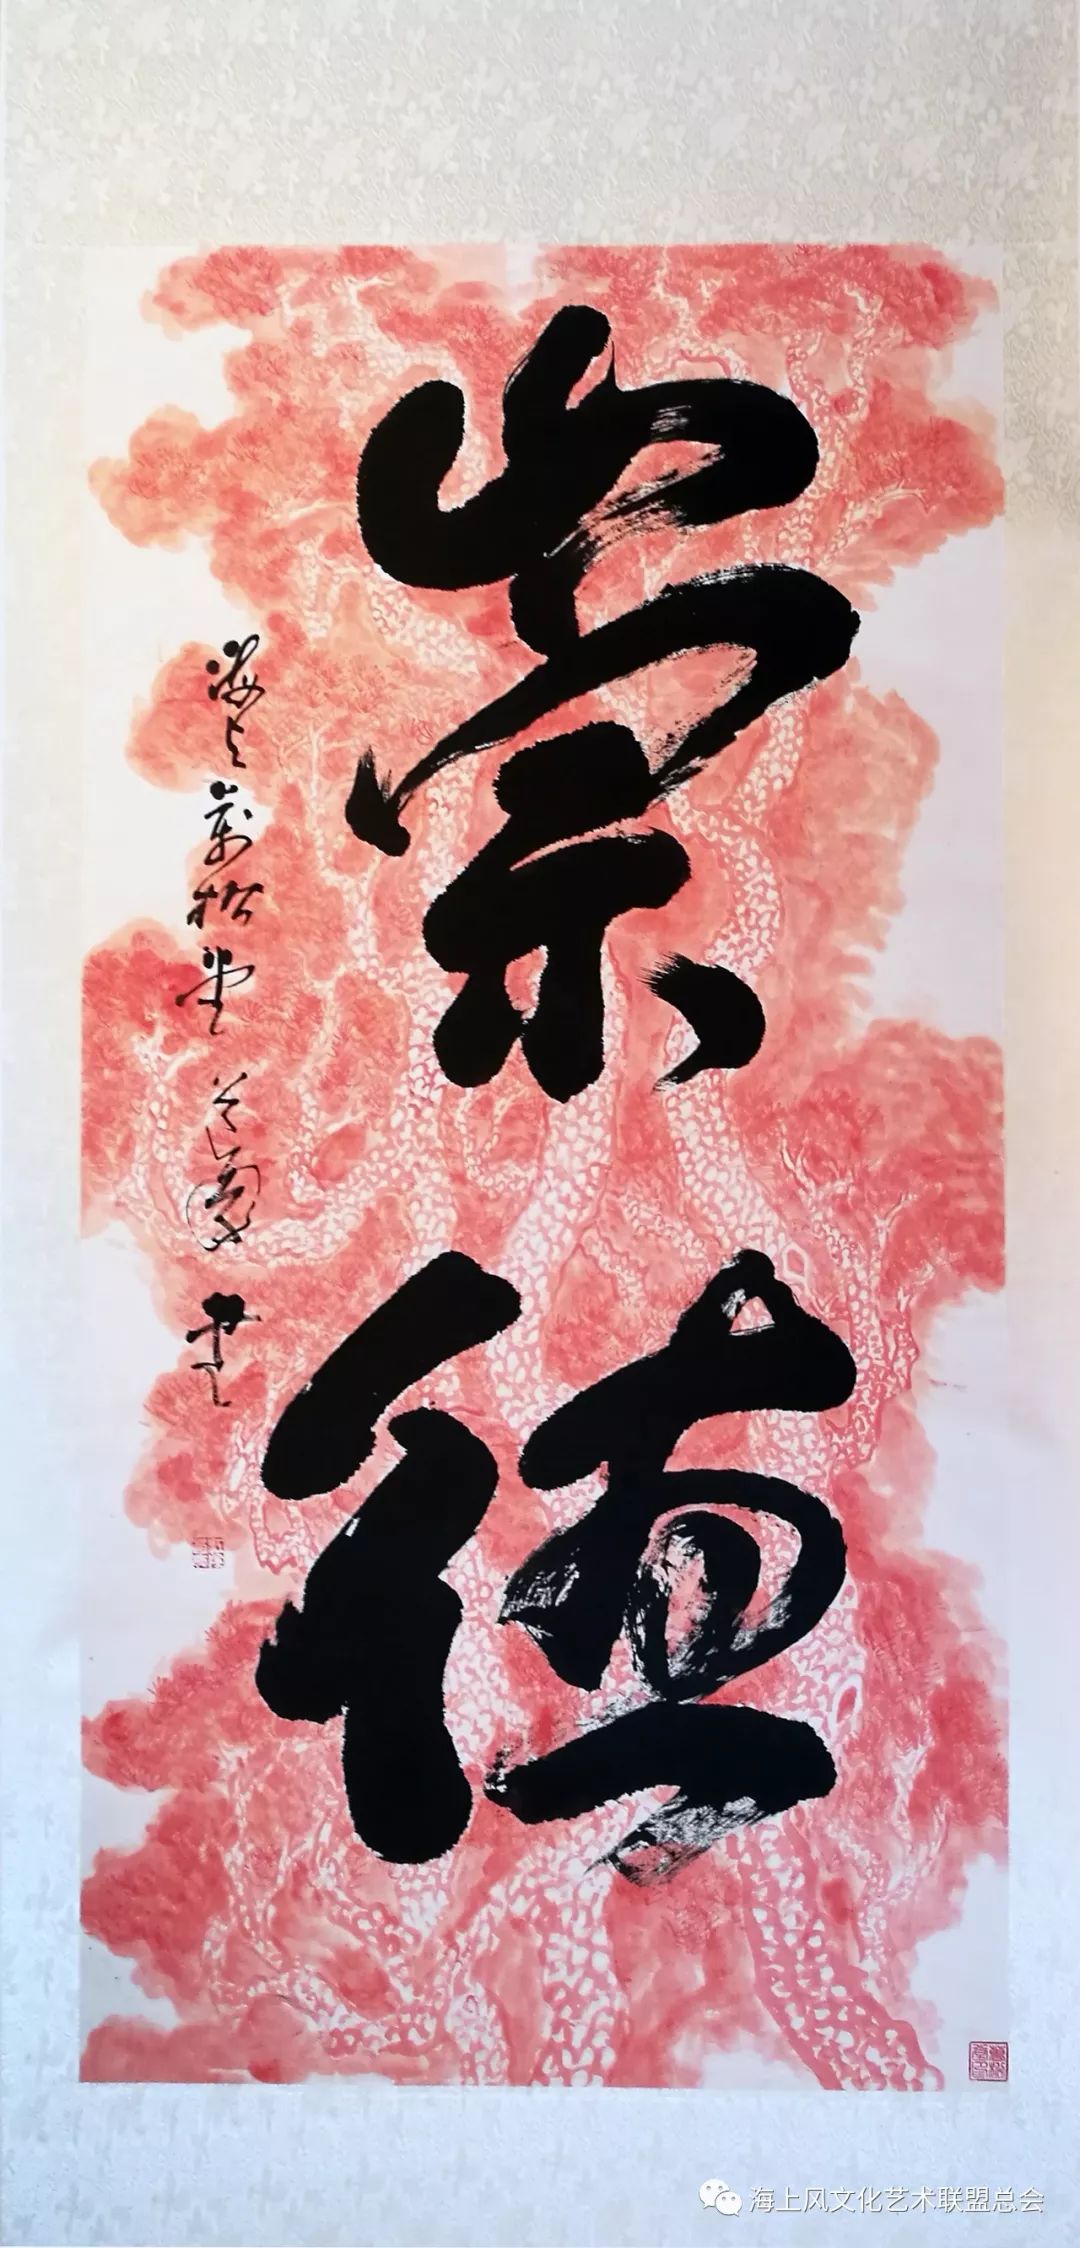 崇德
海上萬松堂
書
海上风文化艺术联盟总会